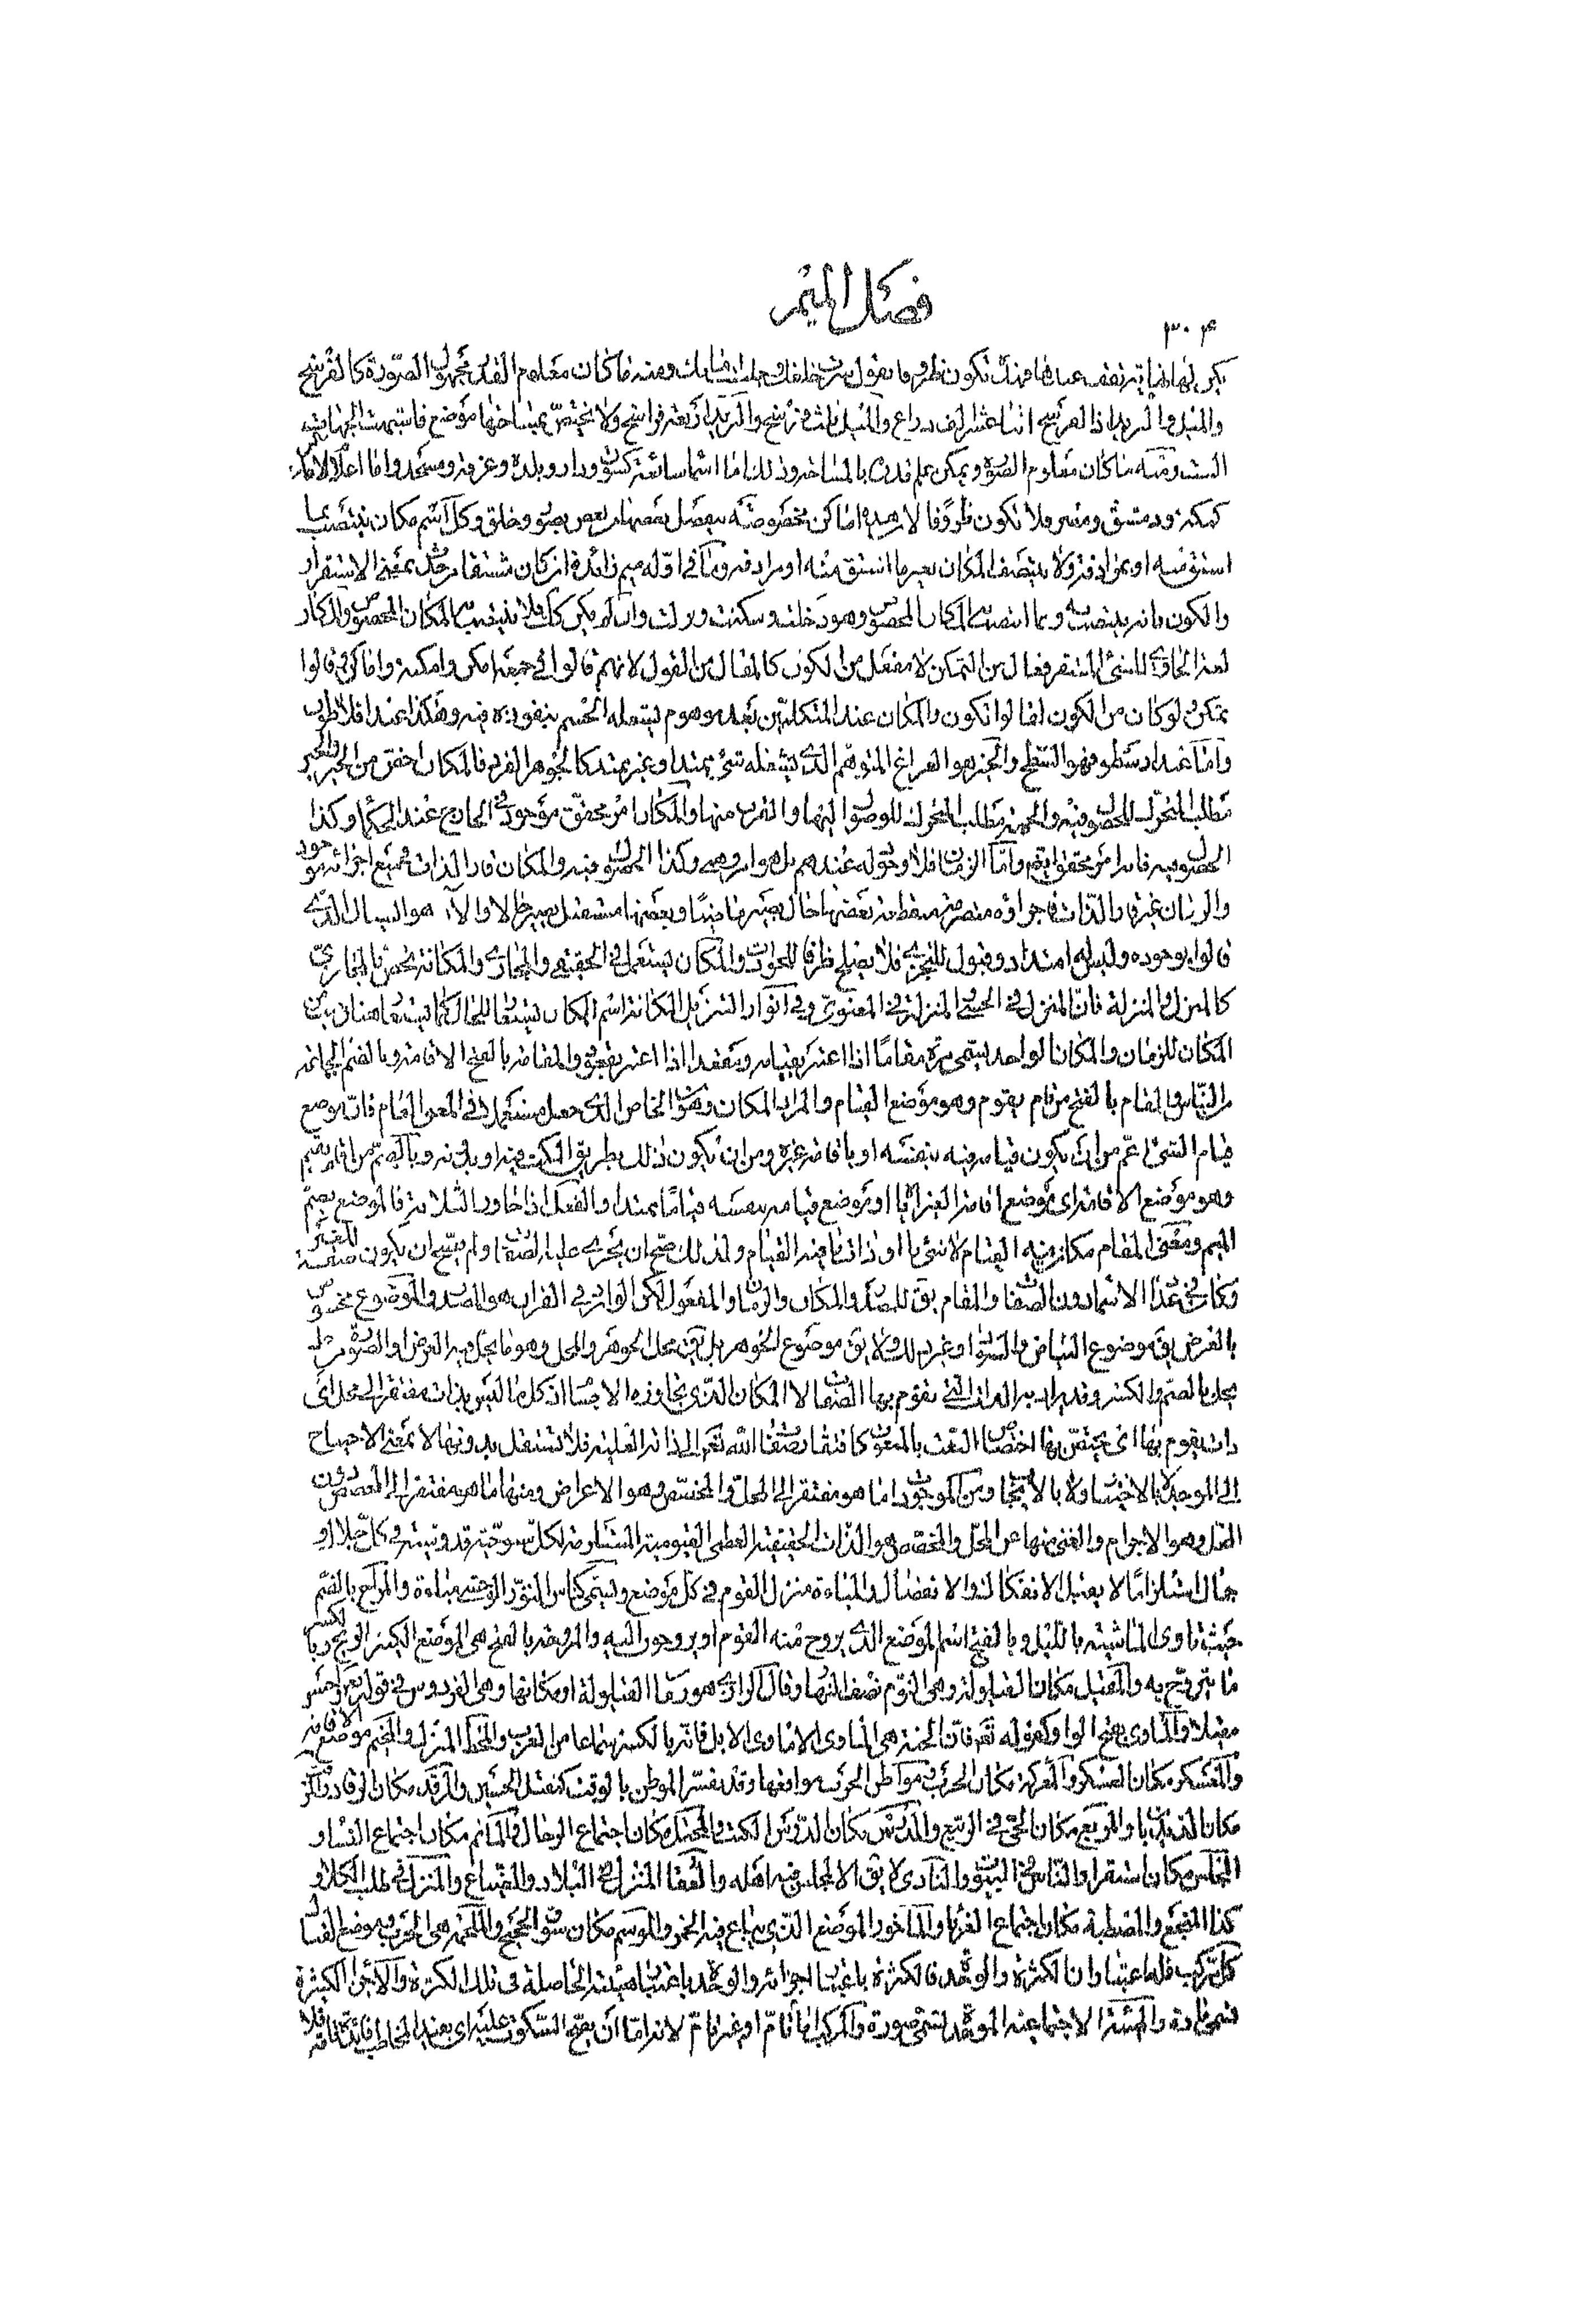 فصل الميم
٣٠٤
يكن لها نهاية يقف عندها فهذه تكون ظروفا يقول سرت خلفك وجلست أمامك ومنه ما كان معلوم القدر مجهول الصورة كالفرسخ
والميل والبريد إذ الفرسخ اثنا عشر ألف ذراع والميل ثلث فرسخ والبريد أربعة فراسخ ولا يختص بمساحتها موضع فاشبهت الجهات
الست ومنه ما كان معلوم الصورة ويمكن علم قدره بالمساحة وذلك إما أسماء شائعة كسوق ودار وبلدة وغرفة ومسجد وإما أعلام الأماكن
كمكة ودمشق ومصر ولا تكون ظروفا لان هذه أماكن مخصوصة ينفصل بعضها من بعض بصور وخلق وكل اسم مكان ينتصب بما
اشتق منه أو بمرادفه ولا ينتصب المكان بغير ما اشتق منه أو مرادفه وما في أوله ميم زائدة إن كان مشتقا من حدث بمعنى الاستقرار
والكون فانه ينتصب به وبما ينتصب به المكان المخصوص وهو دخلت وسكنت ونزلت وان لم يكن كذلك فلا ينتصب به المكان المخصوص والمكان
لغة الحاوي للشيء المستقر فعال من التمكن لا مفعل من الكون كالمقال من القول لانهم قالوا في جمعه أمكن وأمكنة وأماكن وقالوا
تمكن ولو كان من الكون لقالوا تكون والمكان عند المتكلمين بعد موهوم يشغله الجسم بنفوذه فيه وهكذا عند أفلاطون
وأما عند أرسطو فهو السطح والحيز هو الفراغ المتوهم الذي يشغله شيء ممتد أو غير ممتد كالجوهر الفرد فالمكان أخص من الحيز والحيز
مطلب المتحرك للحصول فيه والجهة مطلب المتحرك للوصول إليها والقرب منها والمكان أمر محقق موجود في الخارج عند الحكماء وكذا
الحصول فيه فانه أمر محقق أيضا وأما الزمان فلا وجود له عندهم بل هو أمر وهمي وكذا الحصول فيه والمكان قار الذات مجتمع أجزائه موجود
والزمان غير قار الذات فأجزاؤه متصرمة منقطعة بعضها حال يعبر ماضيا وبعضها مستقبل يصير حالا والآن هو السيال الذي
قالوا بوجوده وليس له امتداد وقبول للتجزي فلا يصلح ظرفا للحوادث والمكان يستعمل في الحقيقي والمجازي والمكانة تختص بالمجازي
كالمنزل والمنزلة فان المنزل في الحسي والمنزلة في المعنوي وفي أنوار التنزيل المكانة اسم المكان يستعار للحال كما يستعار هنا من
المكان للزمان والمكان الواحد يسمى مرة مقاما إذا اعتبر بقيامه ومقعدا إذا اعتبر بقعوده والمقامة بالفتح الاقامة وبالضم الجماعة
من الناس والمقام بالفتح من قام يقوم وهو موضع القيام والمراد المكان وهو من الخاص الذي جعل مستعملا في المعنى العام فان موضع
قيام الشيء أعم من أن يكون قيامه فيه بنفسه أو باقامة غيره ومن ان يكون ذلك بطريق المكث فيه أو بدونه وبالضم من أقام يقيم
وهو موضع الاقامة أي موضع اقامة الغير إياه أو موضع قيامه بنفسه قياما ممتدا والفعل إذا جاوز الثلاثة فالموضع بضم
الميم ومعنى المقام مكان فيه القيام لا شيء ما أو ذات ما فيه القيام ولذلك صح أن يجري عليه الصفات ولم يصح أن يكون صفة للغير
فكان في عداد الأسماء دون الصفات والمقام يق للمصدر والمكان والزمان والمفعول لكن الوارد في القرآن هو المصدر والموضوع مخصوص
بالعرض يق موضوع البياض والسواد وغير ذلك ولا يق موضوع الجوهر بل يق محل الجوهر والمحل وهو ما يحل فيه العرض أو الصورة من حل
يحل بالضم والكسر وقد يراد به الذات التي تقوم بها الصفات لا المكان الذي تجاوره الأجسام إذ كل ما ليس بذات مفتقر إلى محل أي
ذات يقوم بها أي يختص بها اختصاص النعت بالمنعوت كاتصاف صفات الله تعم إلى ذاته العلية فلا تستقل بدونها لا بمعنى الاحتياج
إلى الموجد لا بالاختيار ولا بالايجاب ومن الموجودات ما هو مفتقر إلى المحل والمخصص وهو الأعراض ومنها ما هو مفتقر إلى المخصص دون
المحل وهو الأجرام والغني منها عن المحل والمخصص هو الذات الحقيقية العظمى القيومية
حال استلزاما لا يقبل الانفكاك ولا الانفصال والمباءة منزل القوم في كل موضع ويسمى كناس الثور الوحشي مباءة والمراح بالضم
حيث تأوي الماشية بالليل وبالفتح اسم الموضع الذي يروح منه القوم أو يروحون إليه والمروحة بالفتح هي الموضع الكثير الريح وبالكسر
ما يتروح به والمقيل مكان القيلولة وهي النوم نصف النهار وقال الرازي هو زمان القيلولة أو مكانها وهي الفردوس في قوله تعم وأحسن
مقيلا والمأوى بفتح الواو كقوله تعم فان الجنة هي المأوى إلا مأوى الابل فانه بالكسر سماعا من العرب والمحط المنزل والمخيم موضع الاقامة
والمعسكر مكان العسكر والمعركة مكان الحرب في مواطن الحرب مواقفها وقد يفسر الموطن بالوقت كمقتل الحسين والمرقد مكان الرقاد والمركز
مكان الذباب والمربع مكان الحي في الربيع والمدرس مكان الدروس الكتب والمحفل مكان اجتماع الرجال والمأتم مكان اجتماع النساء و
المجلس مكان استقرار الناس في البيوت والنادي لا يق الا لمجلس فيه أهله والعقار المنزل في البلاد والضياع والمنزل في طلب الكلاء و
كذا المنتجع والمصطبة مكان اجتماع الغرباء والماخور الموضع الذي يباع فيه الخمر والموسم مكان سوق الحجيج والملحمة هي الحرب وموضع القتال
كل مركب فله اعتباران الكثرة والوحدة فالكثرة باعتبار أجزائه والوحدة باعتبار هيئته الحاصلة في تلك الكثرة والأجزاء الكثيرة
تسمى مادة والهيئة الاجتماعية الموحدة تسمى صورة والمركب إما تام أو غير تام لانه إما أن يصح السكوت عليه أي يفيد المخاطب فائدة تامة فلا